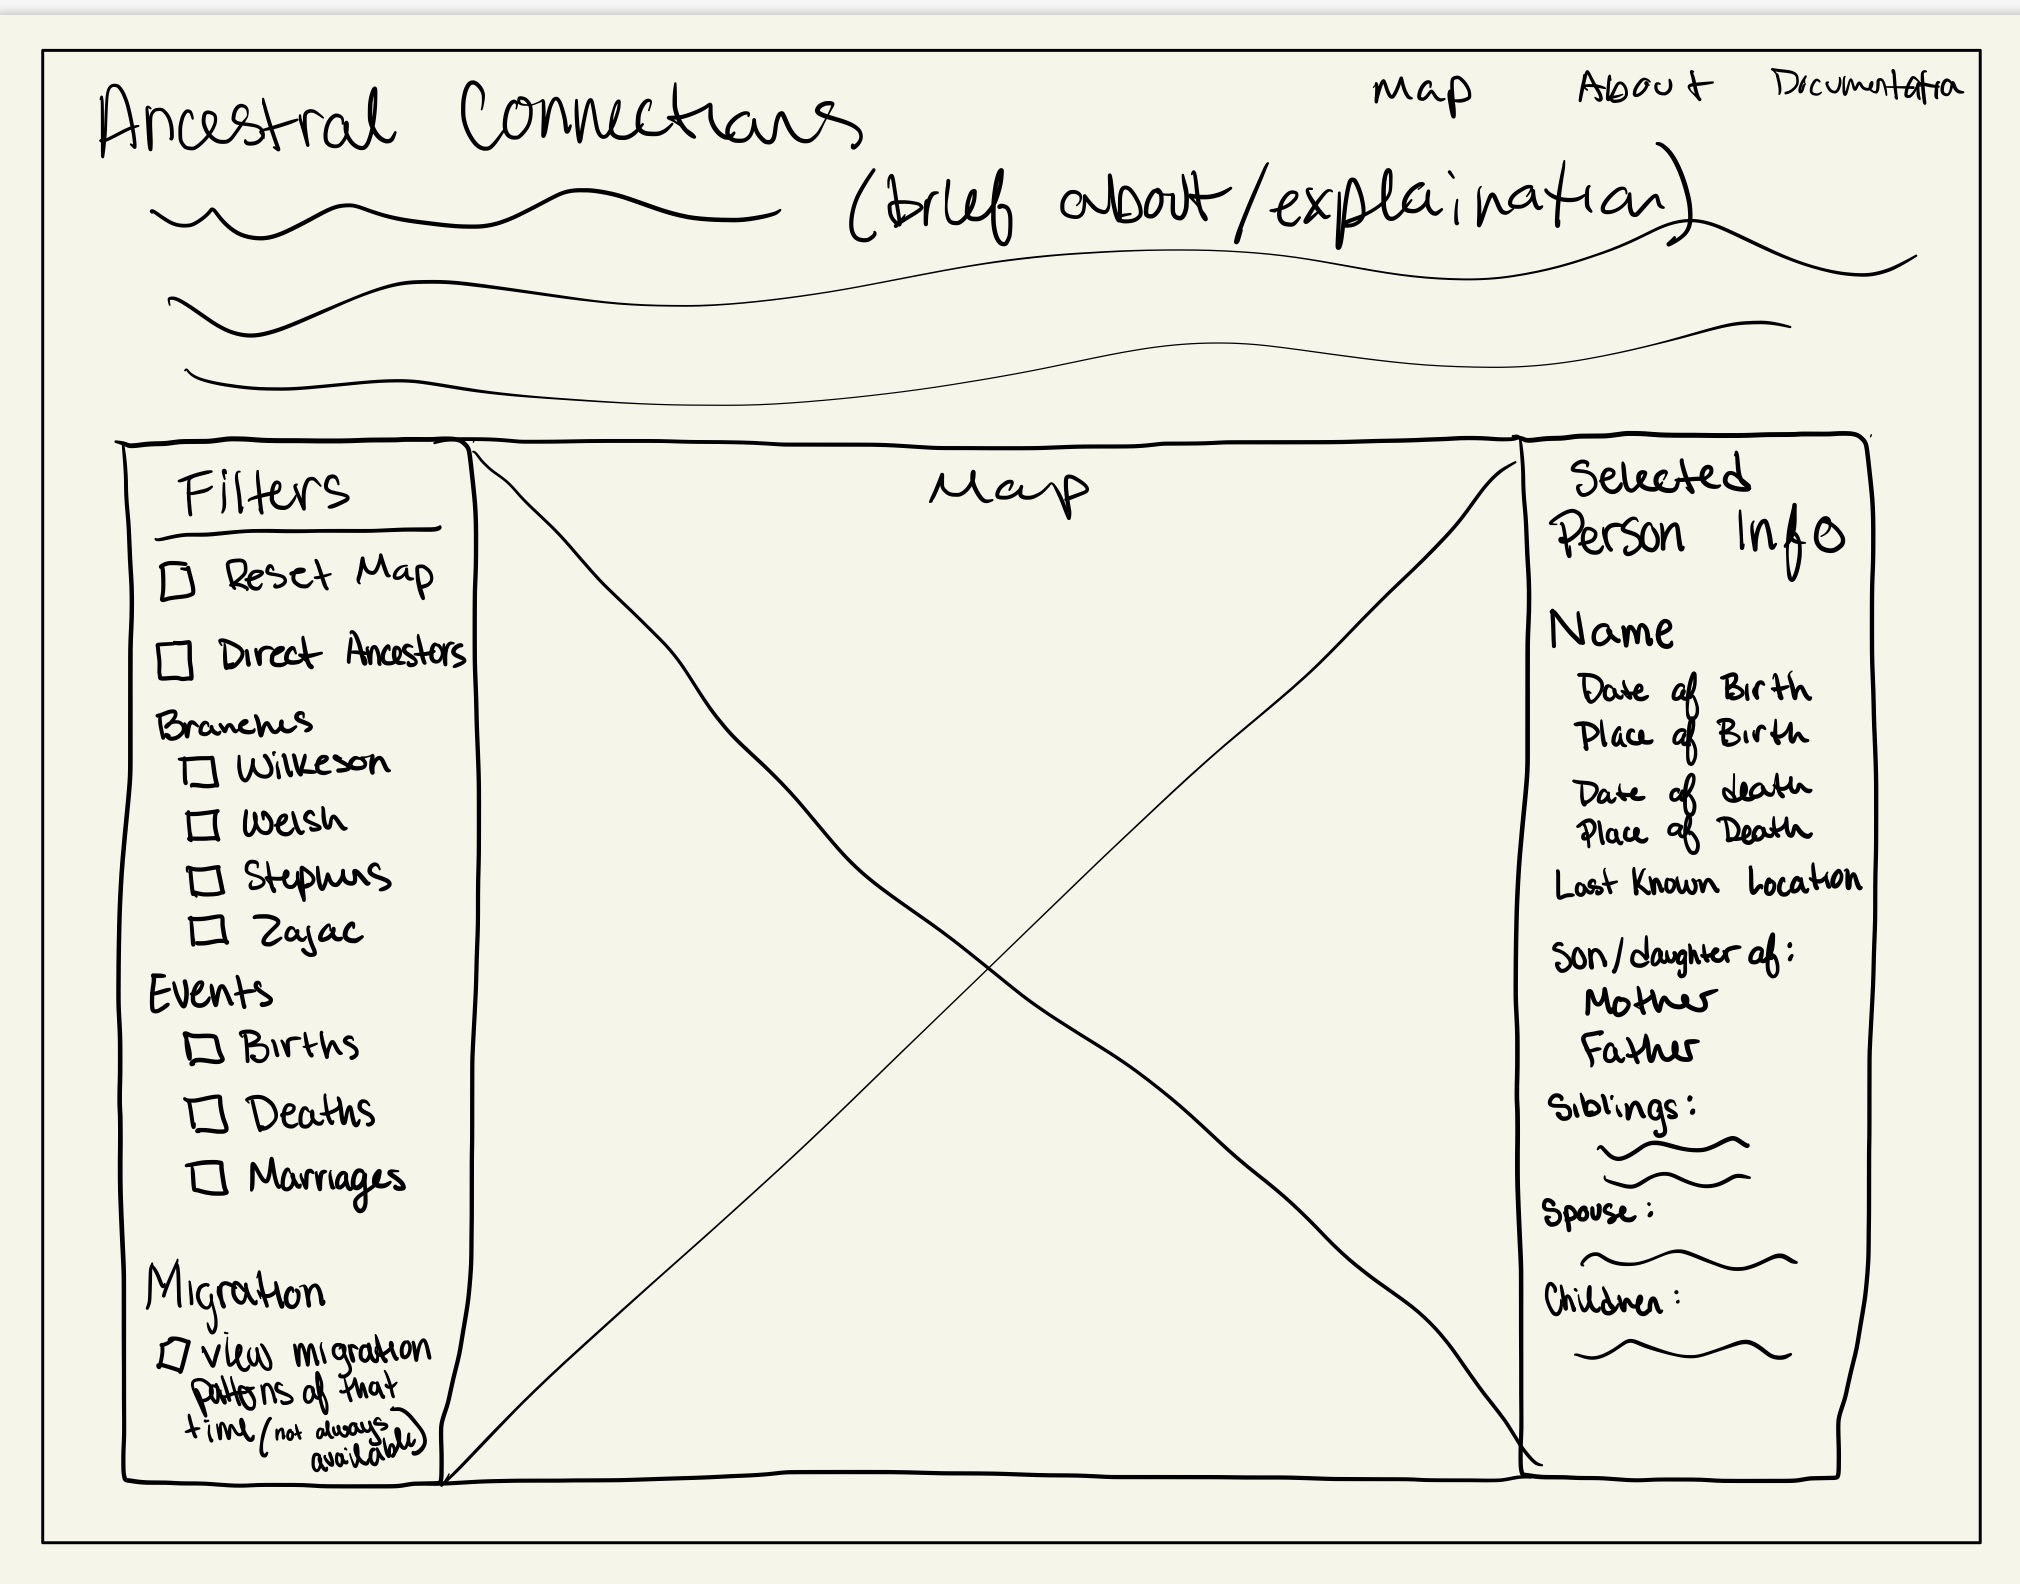 Ancestral Connections
Map About Documentation
(brief about/explaination)
Filters
Reset Map
Direct Ancestors
Branches
Wilkeson
Welsh
Stephens
Zajac
Events
Births
Deaths
Marriages
Migration
view migration
patterns of that
time (not always
available)
Map
Selected
Person Info
Name
Date of Birth
Place of Birth
Date of death
Place of Death
Last Known Location
Son/daughter of:
Mother
Father
Siblings:
Spouse:
Children: